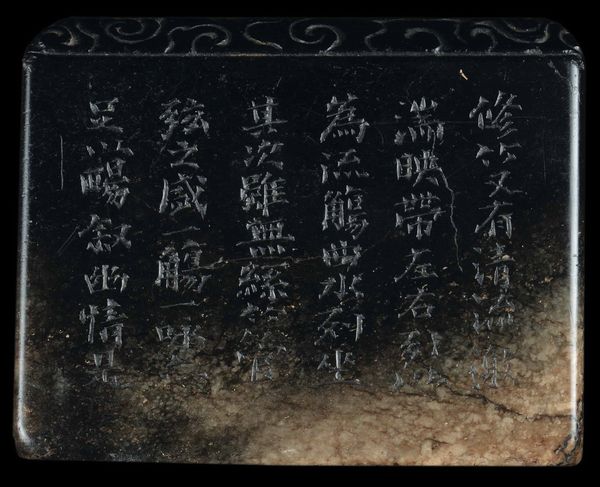 修竹又有清流激
湍映帶左右引以
為流觴曲水列坐
其次雖無絲竹管
弦之盛一觴一詠亦
足以暢叙幽情是